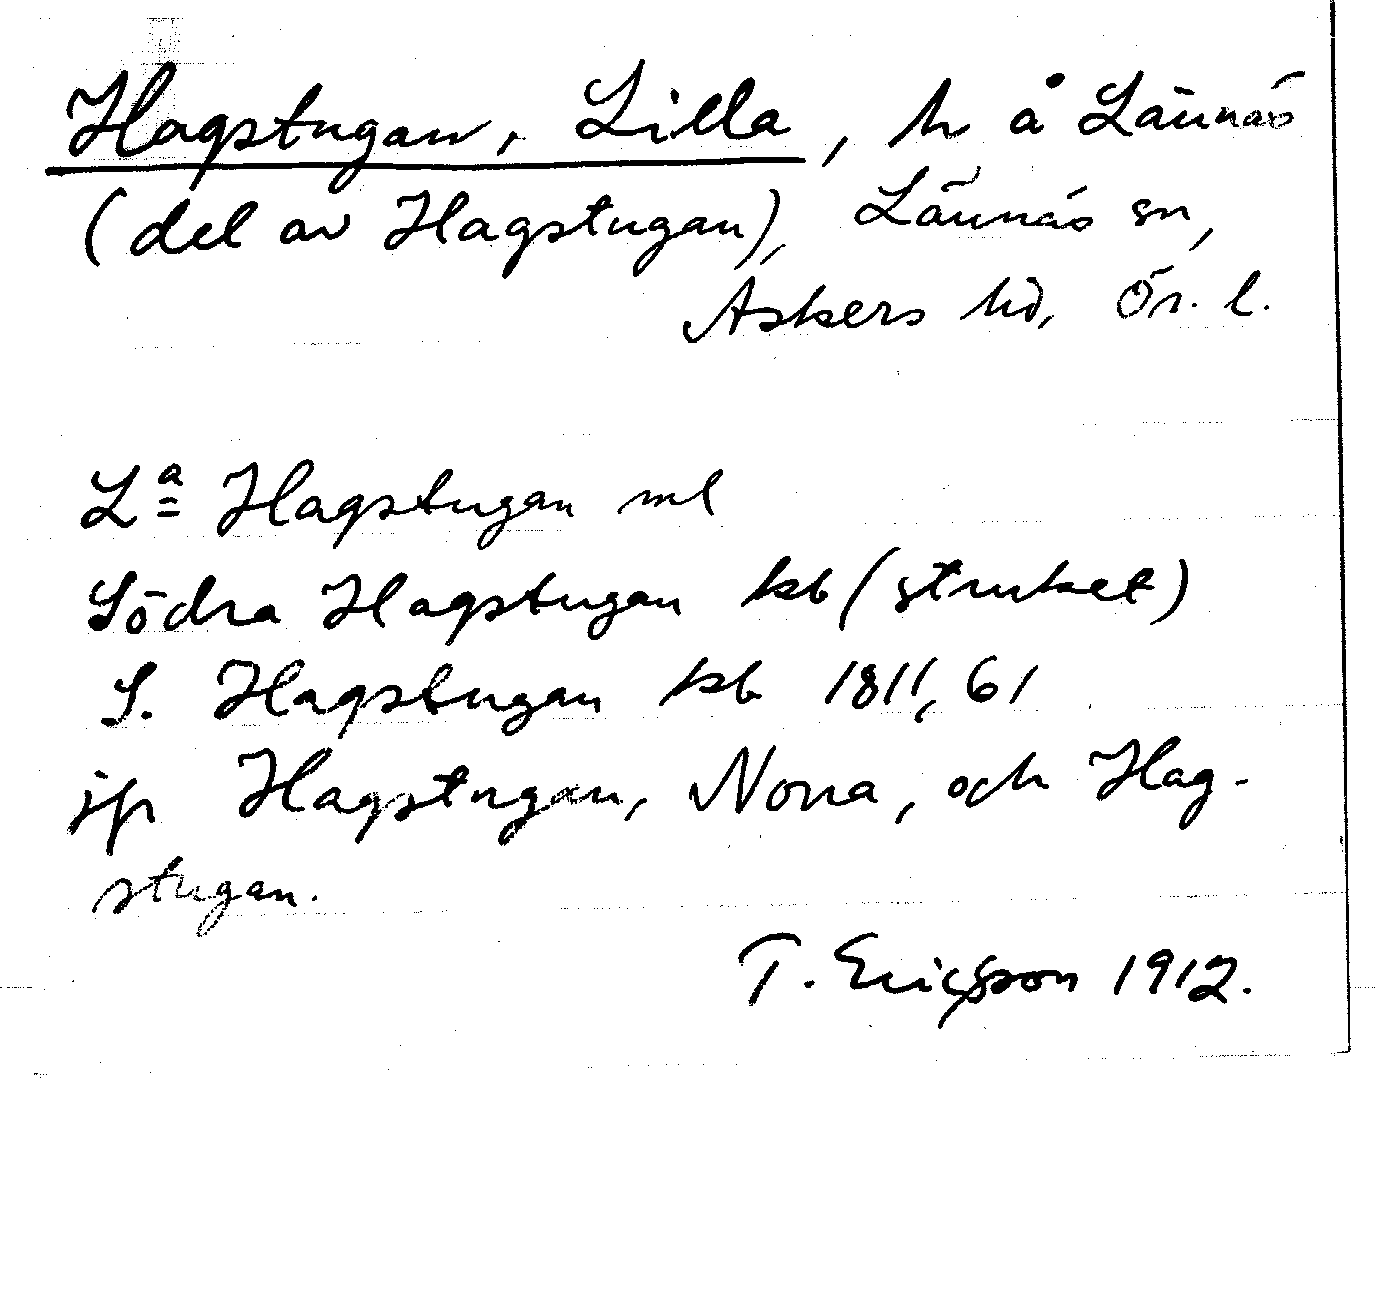 Hagstugan, Lilla, h å Lännäs
(del av Hagstugan), Lännäs sn,
Askers hd, Ör. l.
Lª Hagstugan ml
Södra Hagstugan kb (struket)
S. Hagstugan kb 1811, 61
jfr Hagstugan, Norra, och Hag-
stugan.
T. Ericsson 1912.